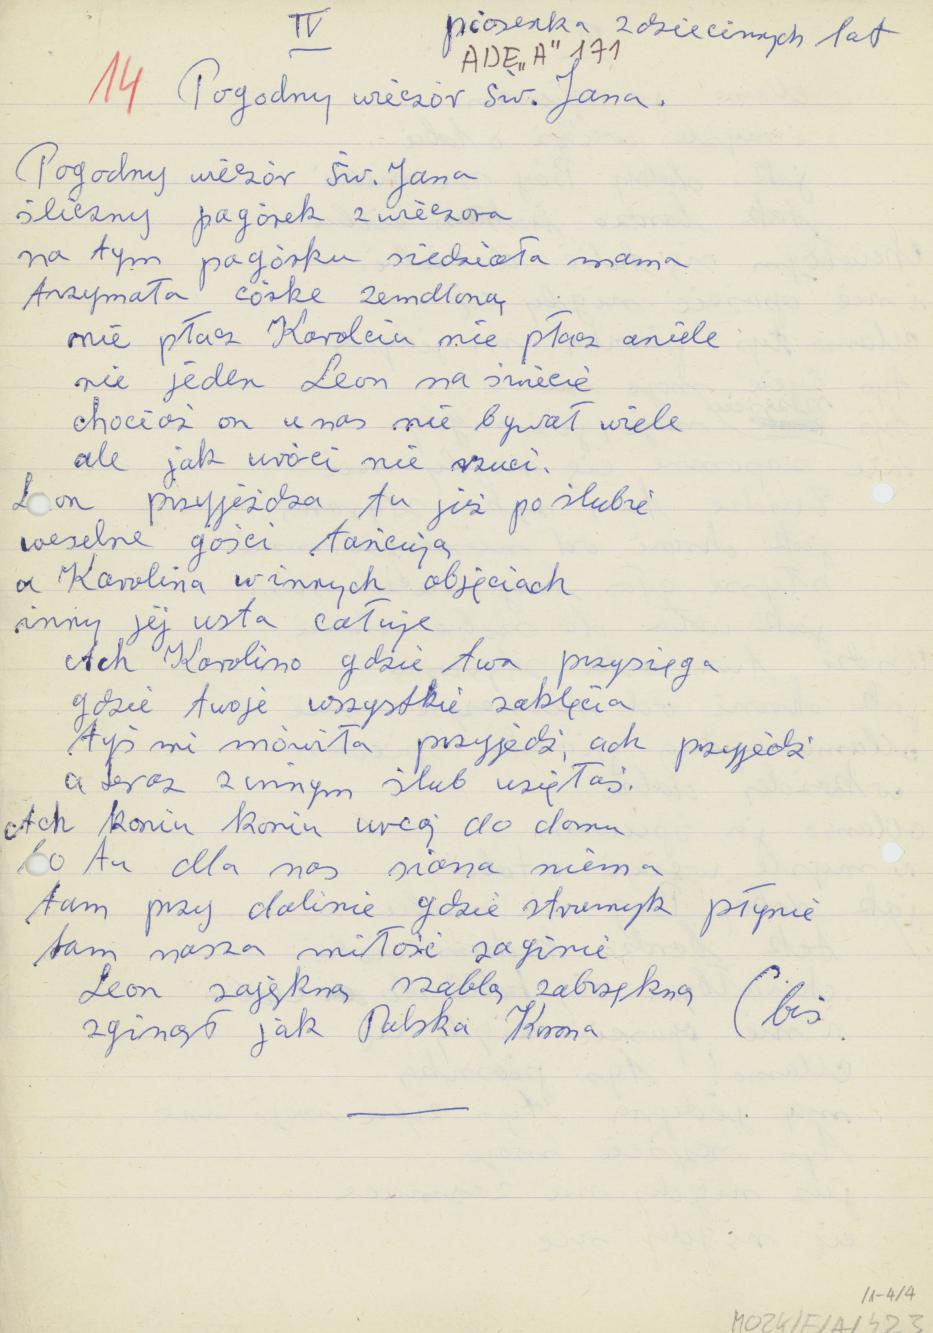 IV
piosenka z dziecinnych lat
ADE „A" 171
14 Pogodny wieczór Św. Jana.
Pogodny wieczór Św. Jana
śliczny pagórek z wieczora
na tym pagórku siedziała mama
trzymała córke zemdloną
nie płacz Karolciu nie płacz aniele
nie jeden Leon na świecie
chociaż on u nas nie bywał wiele
ale jak wróci nie rzuci.
Leon przyjeżdza tu już po ślubie
weselne gości tańcują
a Karolina w innych objęciach
inny jej usta całuje
Ach Karolino gdzie twa przysięga
gdzie twoje wszystkie zaklęcia
Tyś mi mówiła przyjedź, ach przyjedź
a teraz z innym ślub wzięłaś.
Ach koniu koniu wracaj do domu
bo tu dla nas siana niema
tam przy dolinie gdzie strumyk płynie
tam nasza miłość zaginie
Leon zajęknął szablą zabrzęknął
zginął jak Polska Korona (bis
/1-4/4
M024/F/A/423